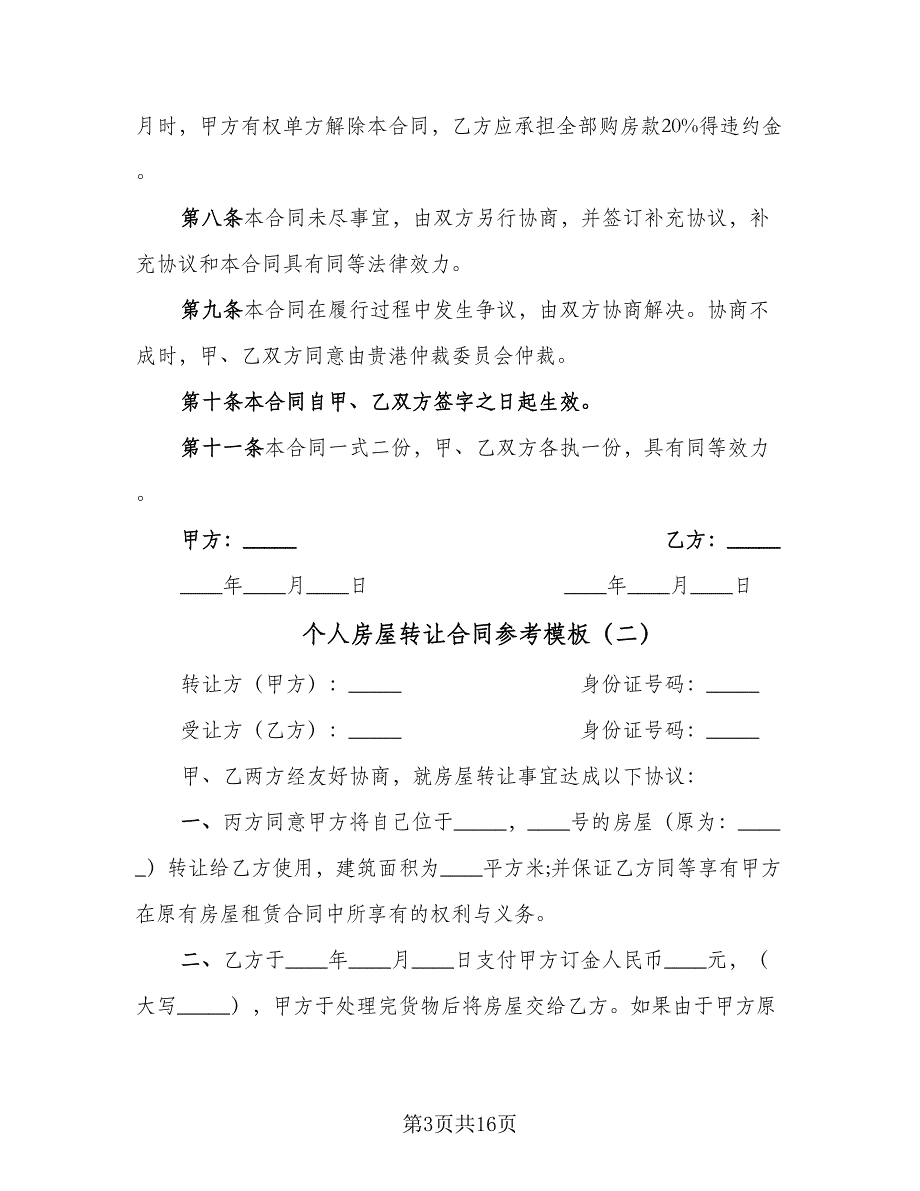 月时，甲方有权单方解除本合同，乙方应承担全部购房款20%得违约金
。
第八条本合同未尽事宜，由双方另行协商，并签订补充协议，补
充协议和本合同具有同等法律效力。
第九条本合同在履行过程中发生争议，由双方协商解决。协商不
成时，甲、乙双方同意由贵港仲裁委员会仲裁。
第十条本合同自甲、乙双方签字之日起生效。
第十一条本合同一式二份，甲、乙双方各执一份，具有同等效力
。
甲方：_____ 乙方：_____
____年____月____日 ____年____月____日
个人房屋转让合同参考模板（二）
转让方（甲方）：_____ 身份证号码：_____
受让方（乙方）：_____ 身份证号码：_____
甲、乙两方经友好协商，就房屋转让事宜达成以下协议：
一、丙方同意甲方将自己位于_____，____号的房屋（原为：____
_）转让给乙方使用，建筑面积为____平方米;并保证乙方同等享有甲方
在原有房屋租赁合同中所享有的权利与义务。
二、乙方于____年____月____日支付甲方订金人民币____元，（
大写_____），甲方于处理完货物后将房屋交给乙方。如果由于甲方原
第3页共16页